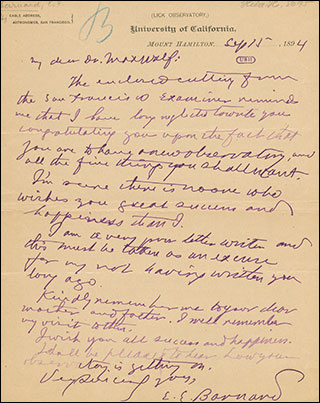 (LICK OBSERVATORY)
CABLE ADDRESS,
ASTRONOMER, SAN FRANCISCO.
B
University of California.
MOUNT HAMILTON, Sep 15 1894
My dear Dr. Max Wolf:
The enclosed cutting from
the San Francisco Examiner reminds
me that I have long neglected to write you
congratulating you upon the fact that
you are to have a new observatory, and
all the fine things you shall want.
I'm sure there is no one who
wishes you great success and
happiness than I.
I am a very poor letter writer and
this must be taken as an excuse
for my not having written you
long ago.
Kindly remember me to your dear
mother and father. I well remember
my visit to
I wish you all success and happiness.
I shall be pleased to hear how your
observatory is getting on.
Very sincerely yours,
E. E. Barnard